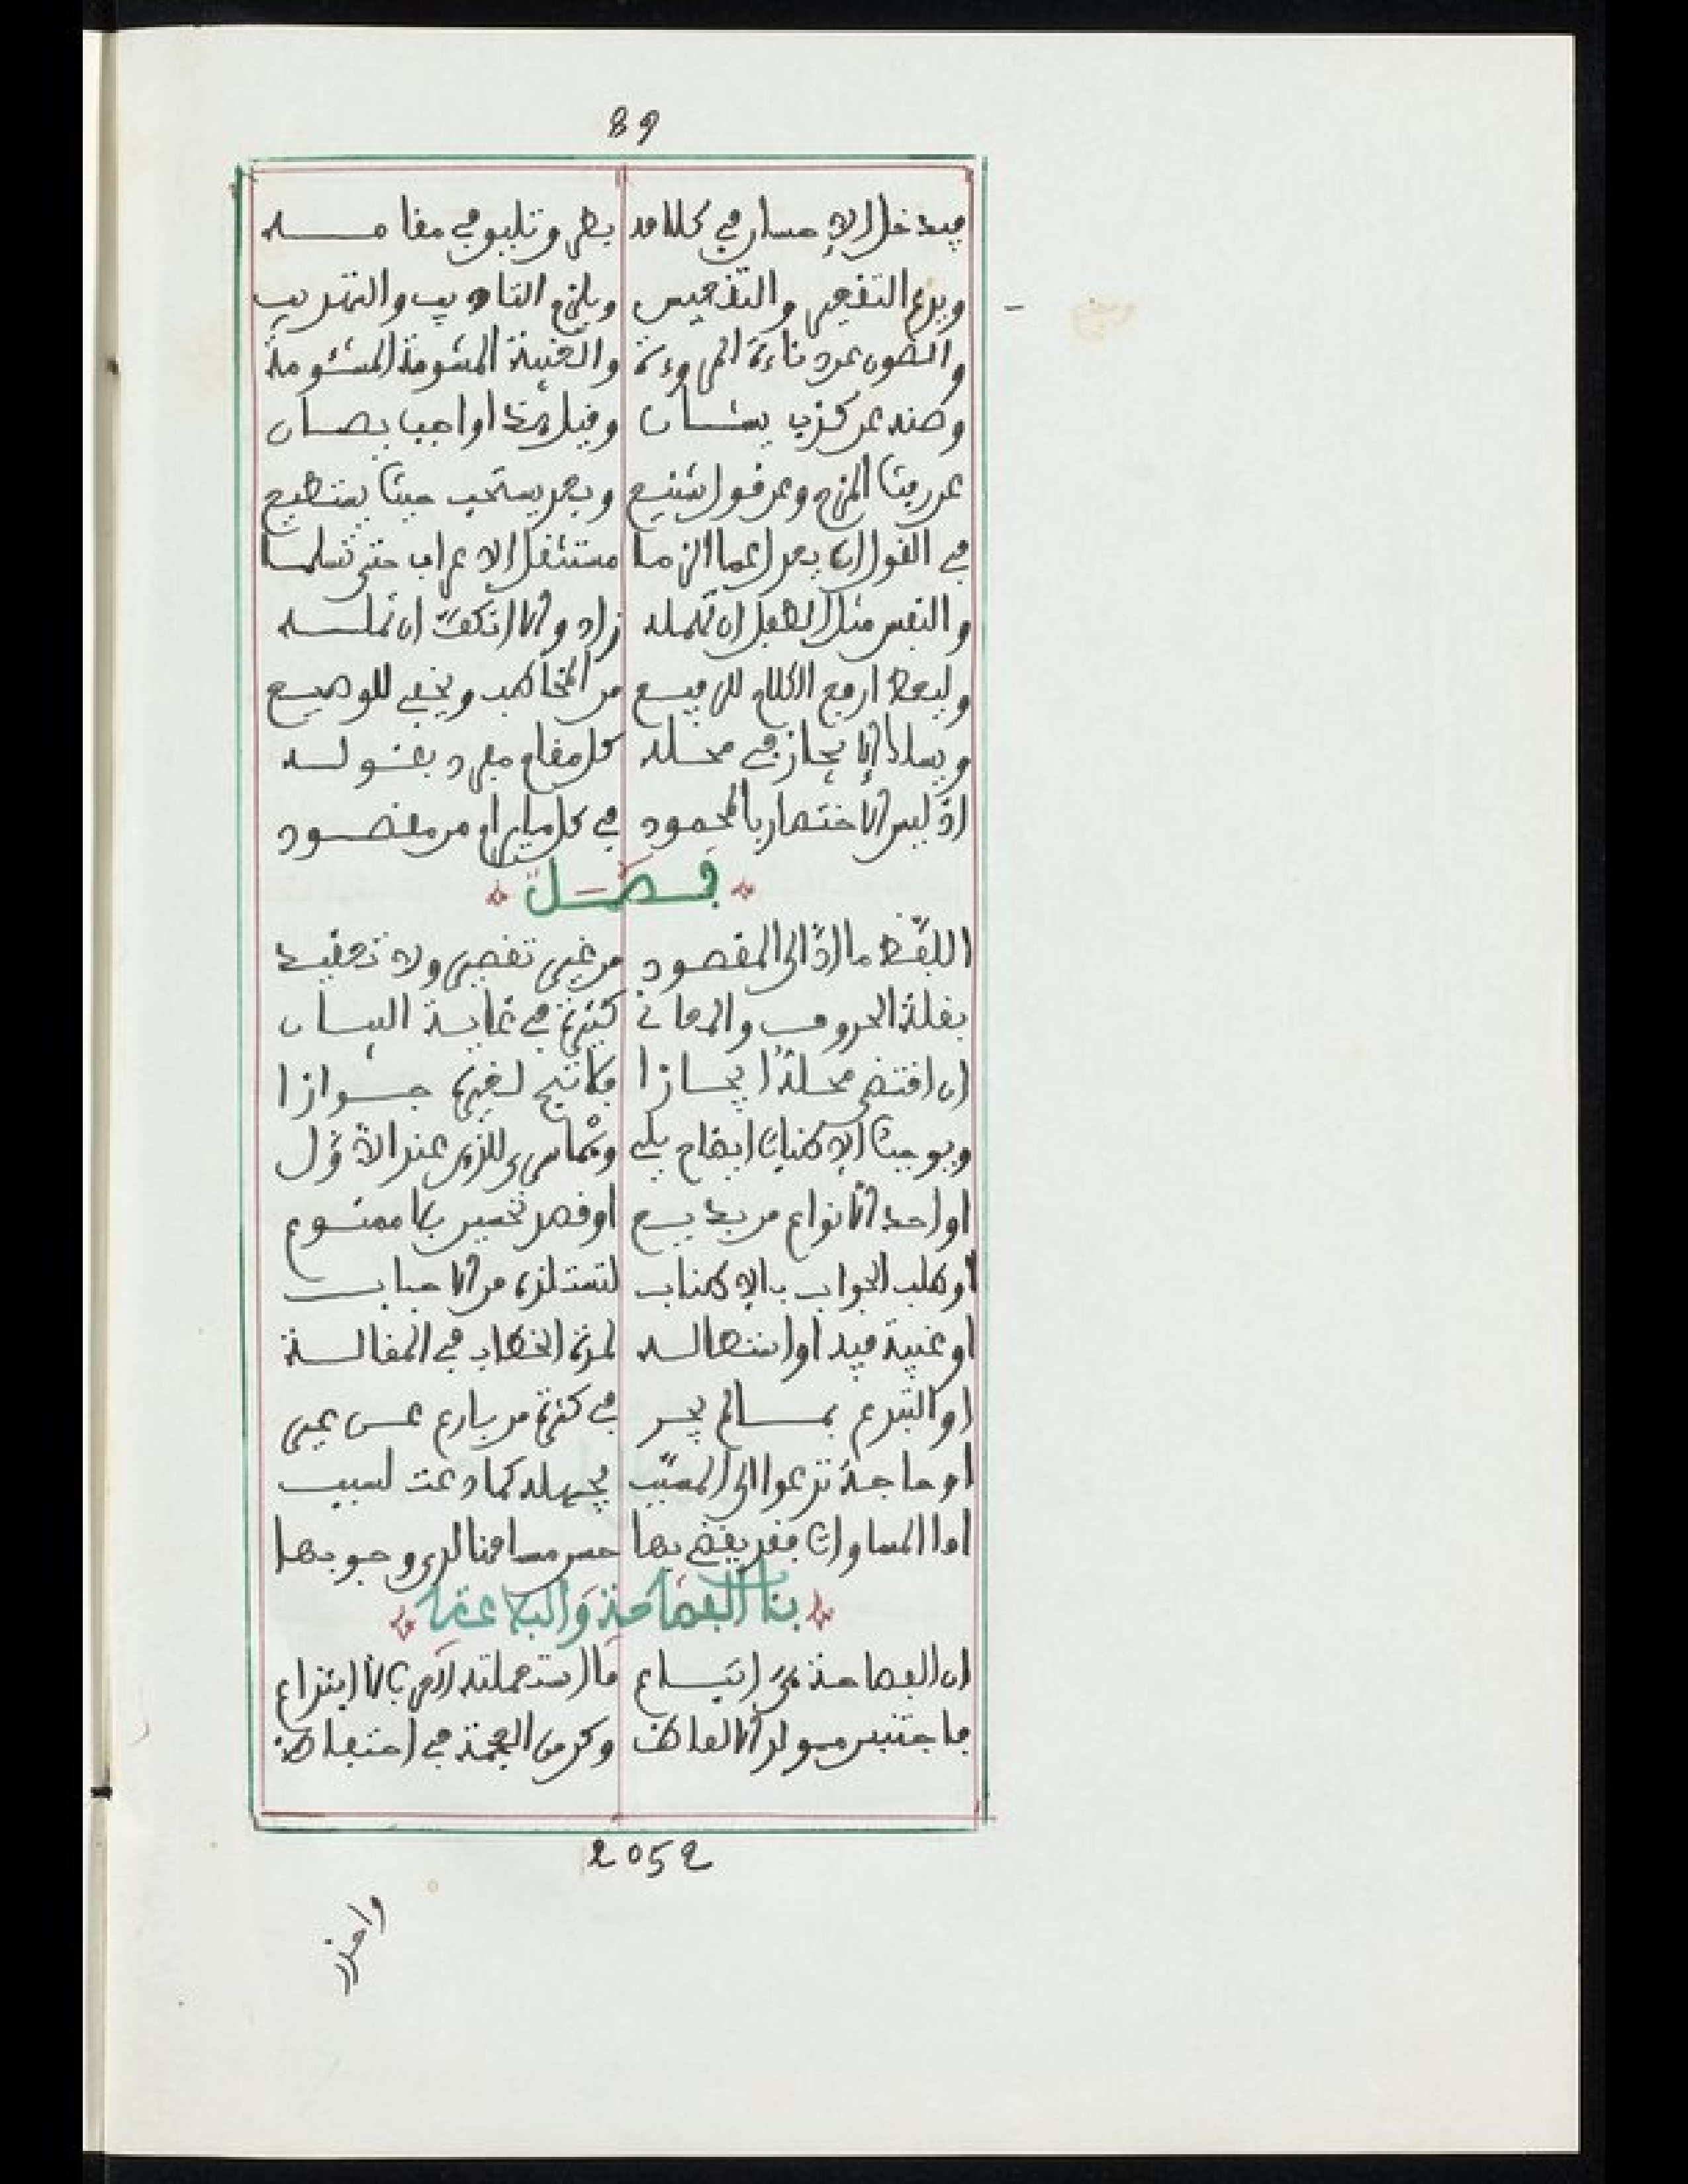 89
فيدخل الاحسان في كلامه بطرو تليو في مقامه
ويدع التقعير والتقعيس ويلزم التاديب والتهذيب
والصون عن دناءة المروءة والغيبة المشومة المشئومة
وصنه عن كذب يشان وقيل هذا واجبا يصان
عن ريث المزح وعن قول شنيع وبعن يستحب حيث يستطيع
في القول ان يعدل عما الزما مستثقل الاعراب حتى تسلما
والنفس مثل الطفل ان تهمله زاد والا انكفت ان تمله
وليعط ارفع الكلام للرفيع من المخاطب ويخفي للوضيع
ويسلك الايجاز في محله كل مقام مفرد بقوله
اذ ليس الاختصار بالمحمود في كل ما يرام من مقصود
فصل
اللفظ ما ادّى الى المقصود من غير تقصير ولا تعقيد
بقلة الحروف والمعاني كثيرة في غاية البيان
ان اقتضى محله ايجازا فكا تيح لغيره جوازا
وبوجيت الاطناب ابهام يلي وتماسىء للذى عند الاوّل
او احد الانواع من بديع او قصد تحسير بها ممنوع
او طلب الجواب بالاطناب لتستلزه من الاحباب
او غيبة فيه او استطاله لمدة الخطاب في المقالة
او التبرع بمسالم يجر في كثرة من بارع عن عيى
او حاجة تدعوا الى المغيّب يجهله كما دعت لسبب
اما المساوات فقد يقضى بها حسن مساقنا لدى وجوبها
بنا الفصاحة والبلاغة
ان الفصاحة هي اتباع ما استعملته العرب بالابتداع
فاجتنبن مولد الالفاظ وكن من العجمة في احتفاظ
2052
واحذر